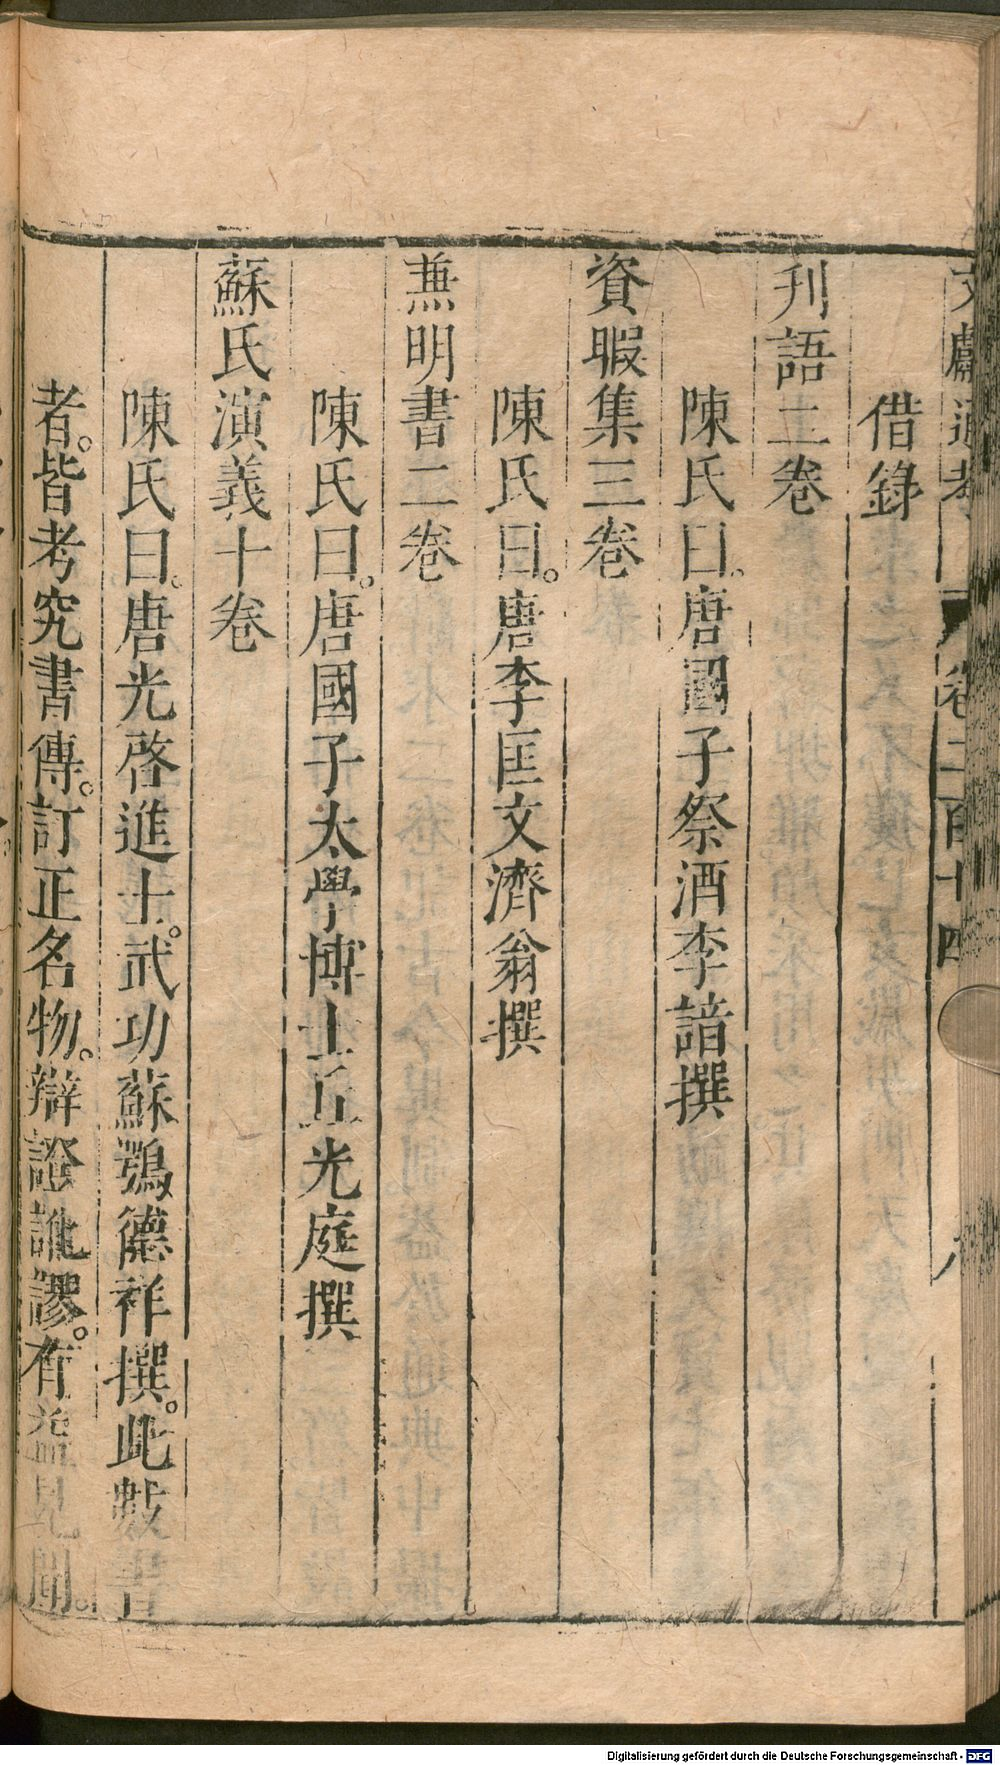 文獻通考 卷二百十四 八
借錄
刋語二卷
陳氏曰。唐國子祭酒李諳撰
資暇集三卷
陳氏曰。唐李匡文濟翁撰
蕪明書二卷
陳氏曰。唐國子太學博士丘光庭撰
蘇氏演義十卷
陳氏曰。唐光啓進士。武功蘇鶚德祥撰。此數書
者。皆考究書傳。訂正名物。辯證訛謬。有益見聞。
Digitalisierung gefördert durch die Deutsche Forschungsgemeinschaft - DFG